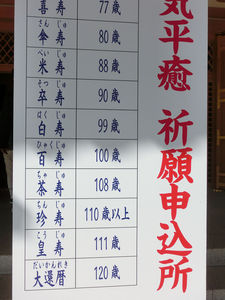 気平癒 祈願申込所
喜寿 77歳
さん じゅ
傘寿 80歳
べい じゅ
米寿 88歳
そつ じゅ
卒寿 90歳
はく じゅ
白寿 99歳
ひゃく じゅ
百寿 100歳
ちゃ じゅ
茶寿 108歳
ちん じゅ
珍寿 110歳以上
こう じゅ
皇寿 111歳
だいかんれき
大還暦 120歳